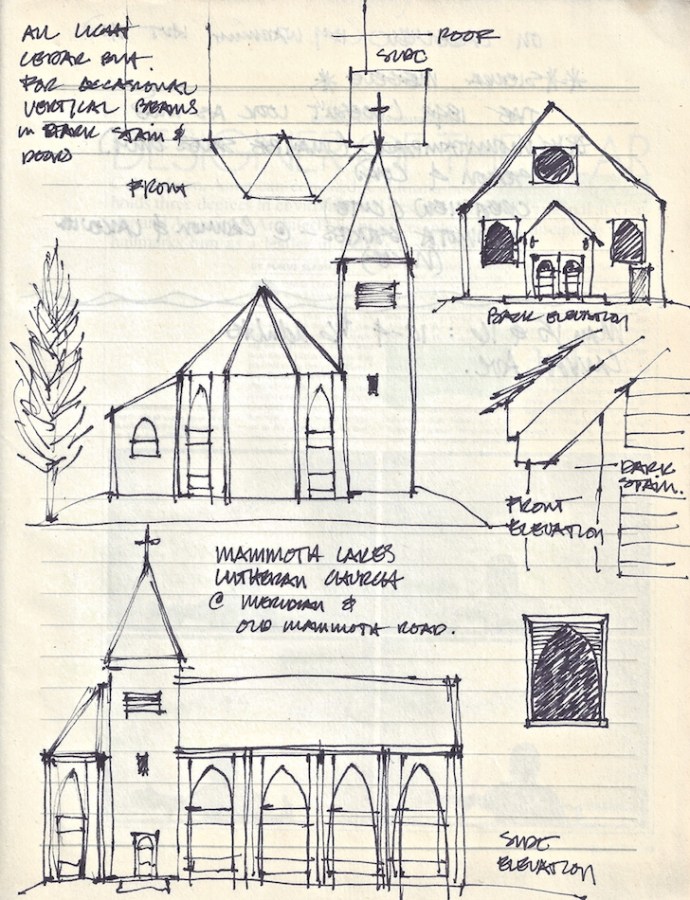 ALL LIGHT
CEDAR BUT
FOR OCCASIONAL
VERTICAL BEAMS
IN DARK STAIN &
DOORS
FRONT
ROOF
SIDE
BACK ELEVATION
DARK
STAIN.
FRONT
ELEVATION
MAMMOTH LAKES
LUTHERAN CHURCH
@ MERIDIAN &
OLD MAMMOTH ROAD.
SIDE
ELEVATION